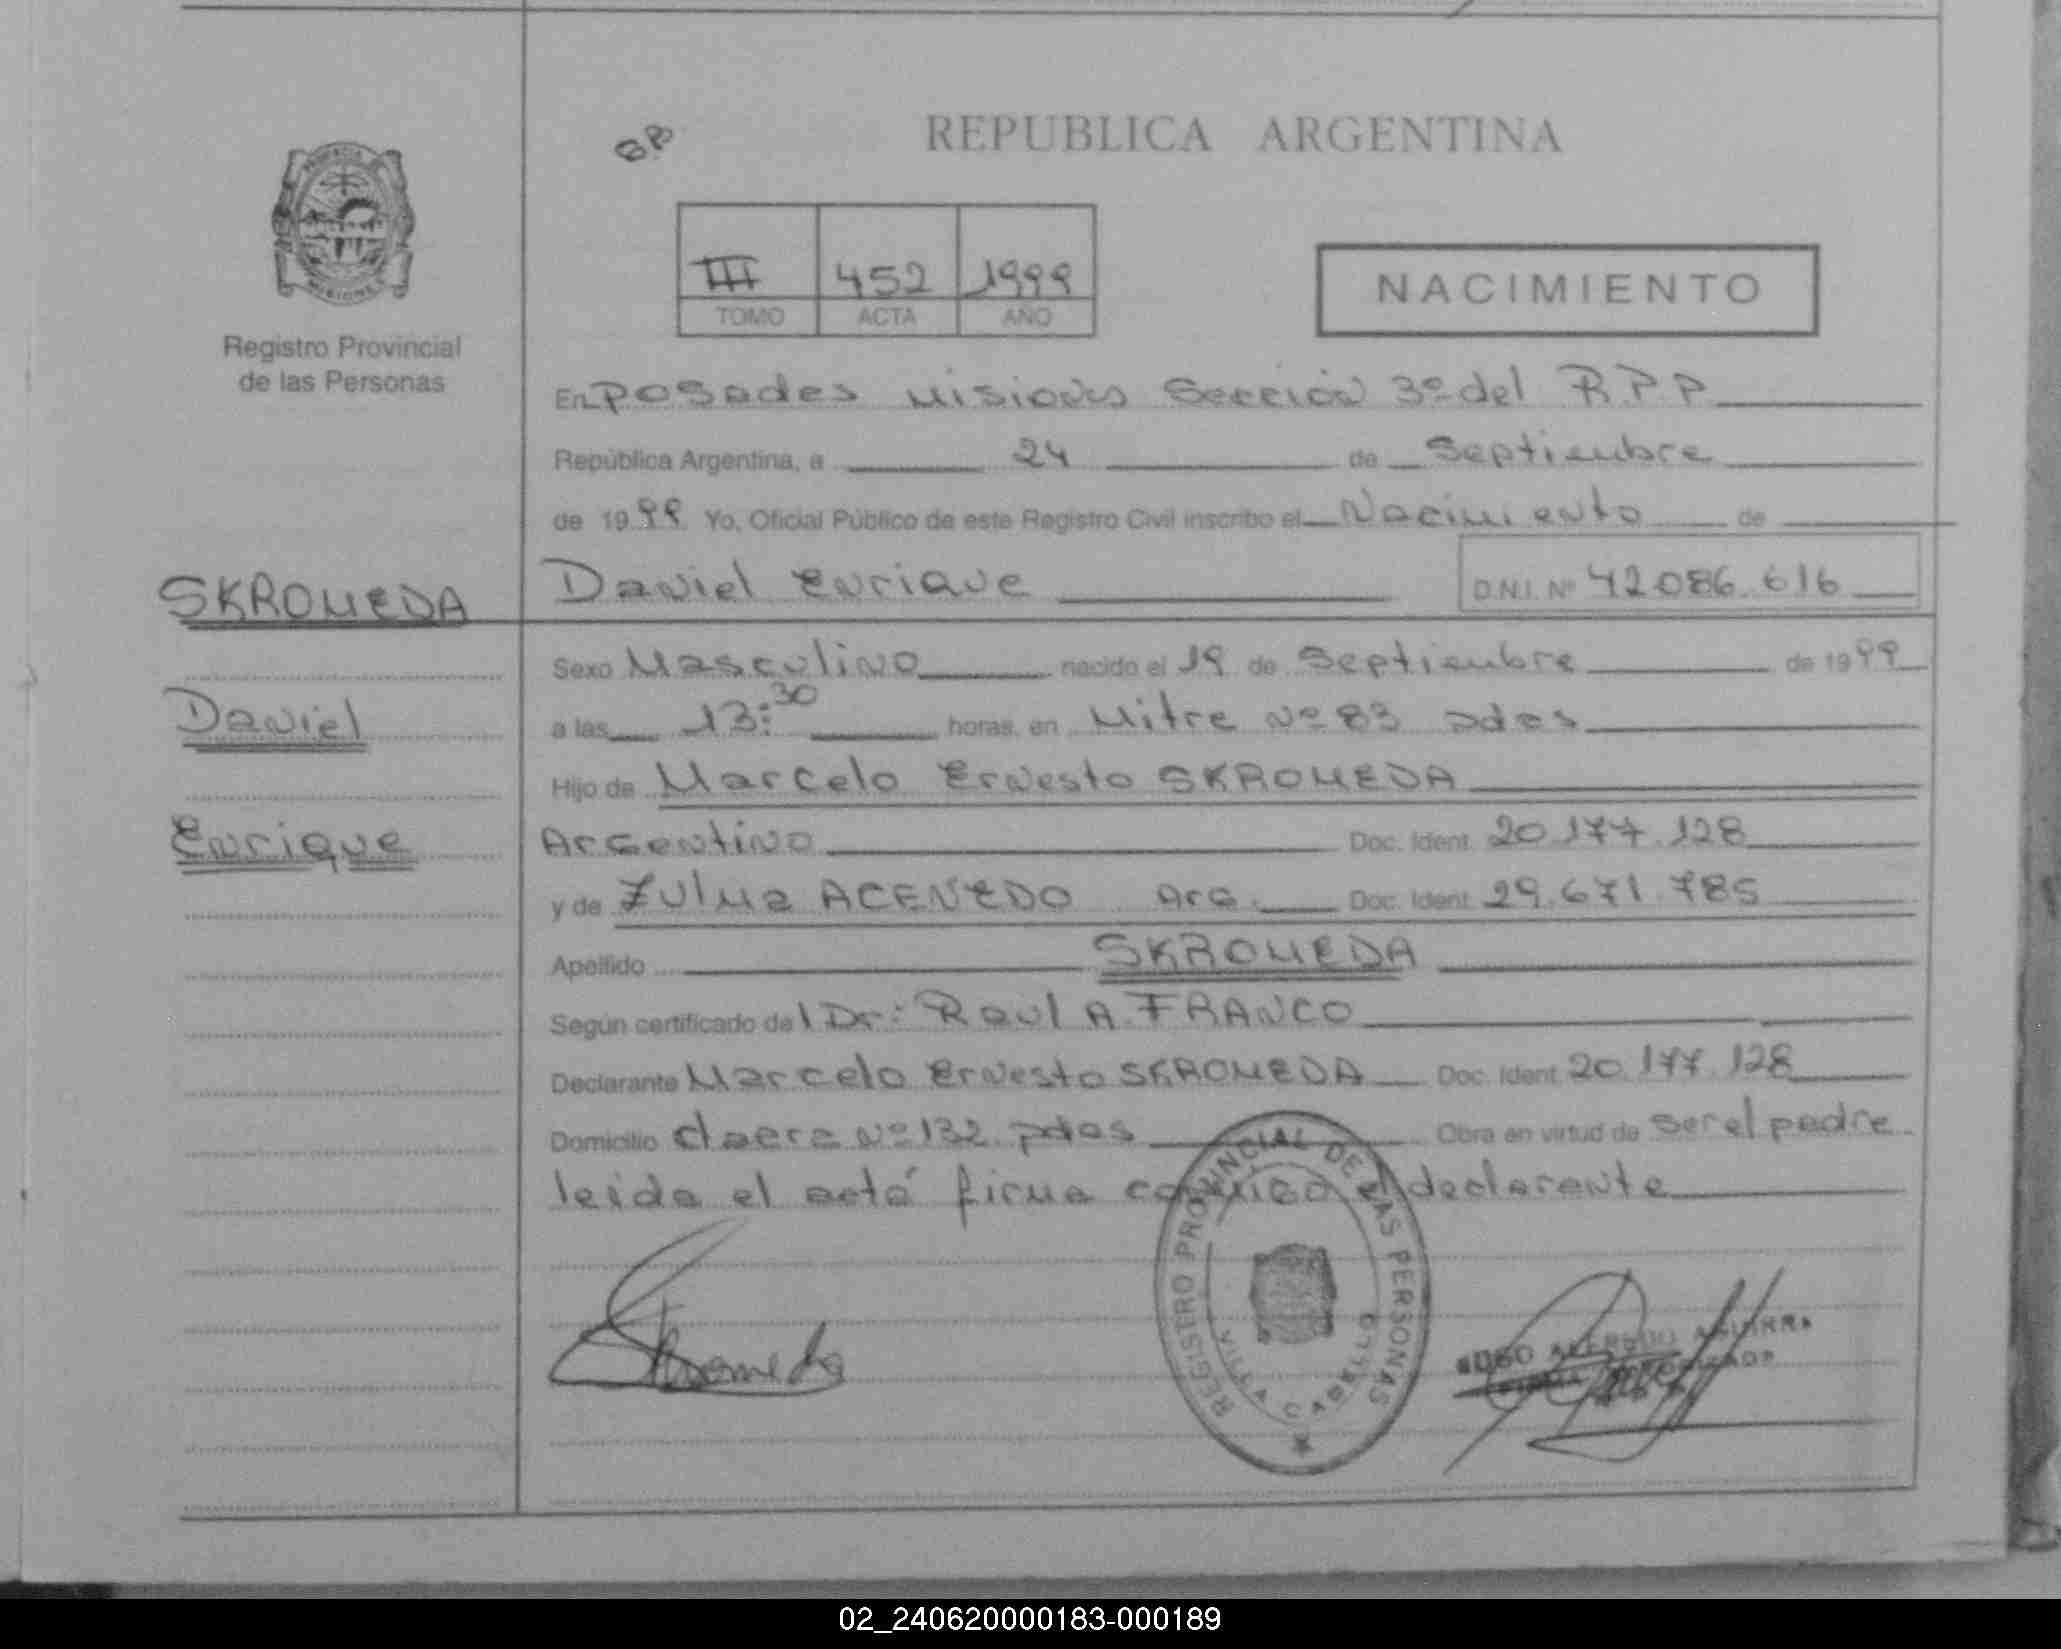 REPUBLICA ARGENTINA
III 452 1999
TOMO ACTA AÑO
NACIMIENTO
PROVINCIA
MISIONES
Registro Provincial
de las Personas
En Posadas Misiones Sección 3º del R.P.P
República Argentina, a 24 de Septiembre
de 1999 Yo, Oficial Público de este Registro Civil inscribo el Nacimiento de
SKROMEDA
Daniel Enrique D.N.I. Nº 42.086.616
Sexo Masculino nacido el 19 de Septiembre de 1999
Daniel
a las 13:30 horas, en Mitre Nº 83
Hijo de Marcelo Ernesto SKROMEDA
Enrique
Argentino Doc. Ident. 20.177.128
y de Zulma ACEVEDO Arg. Doc. Ident. 29.671.785
Apellido SKROMEDA
Según certificado del Dr: Raul A. FRANCO
Declarante Marcelo Ernesto SKROMEDA Doc. Ident. 20.177.128
Domicilio Nº 132 pdas Obra en virtud de ser el padre
leida el acta firma conmigo el declarante
REGISTRO PROVINCIAL DE LAS PERSONAS
VILLA CABELLO
Skromeda
02_240620000183-000189